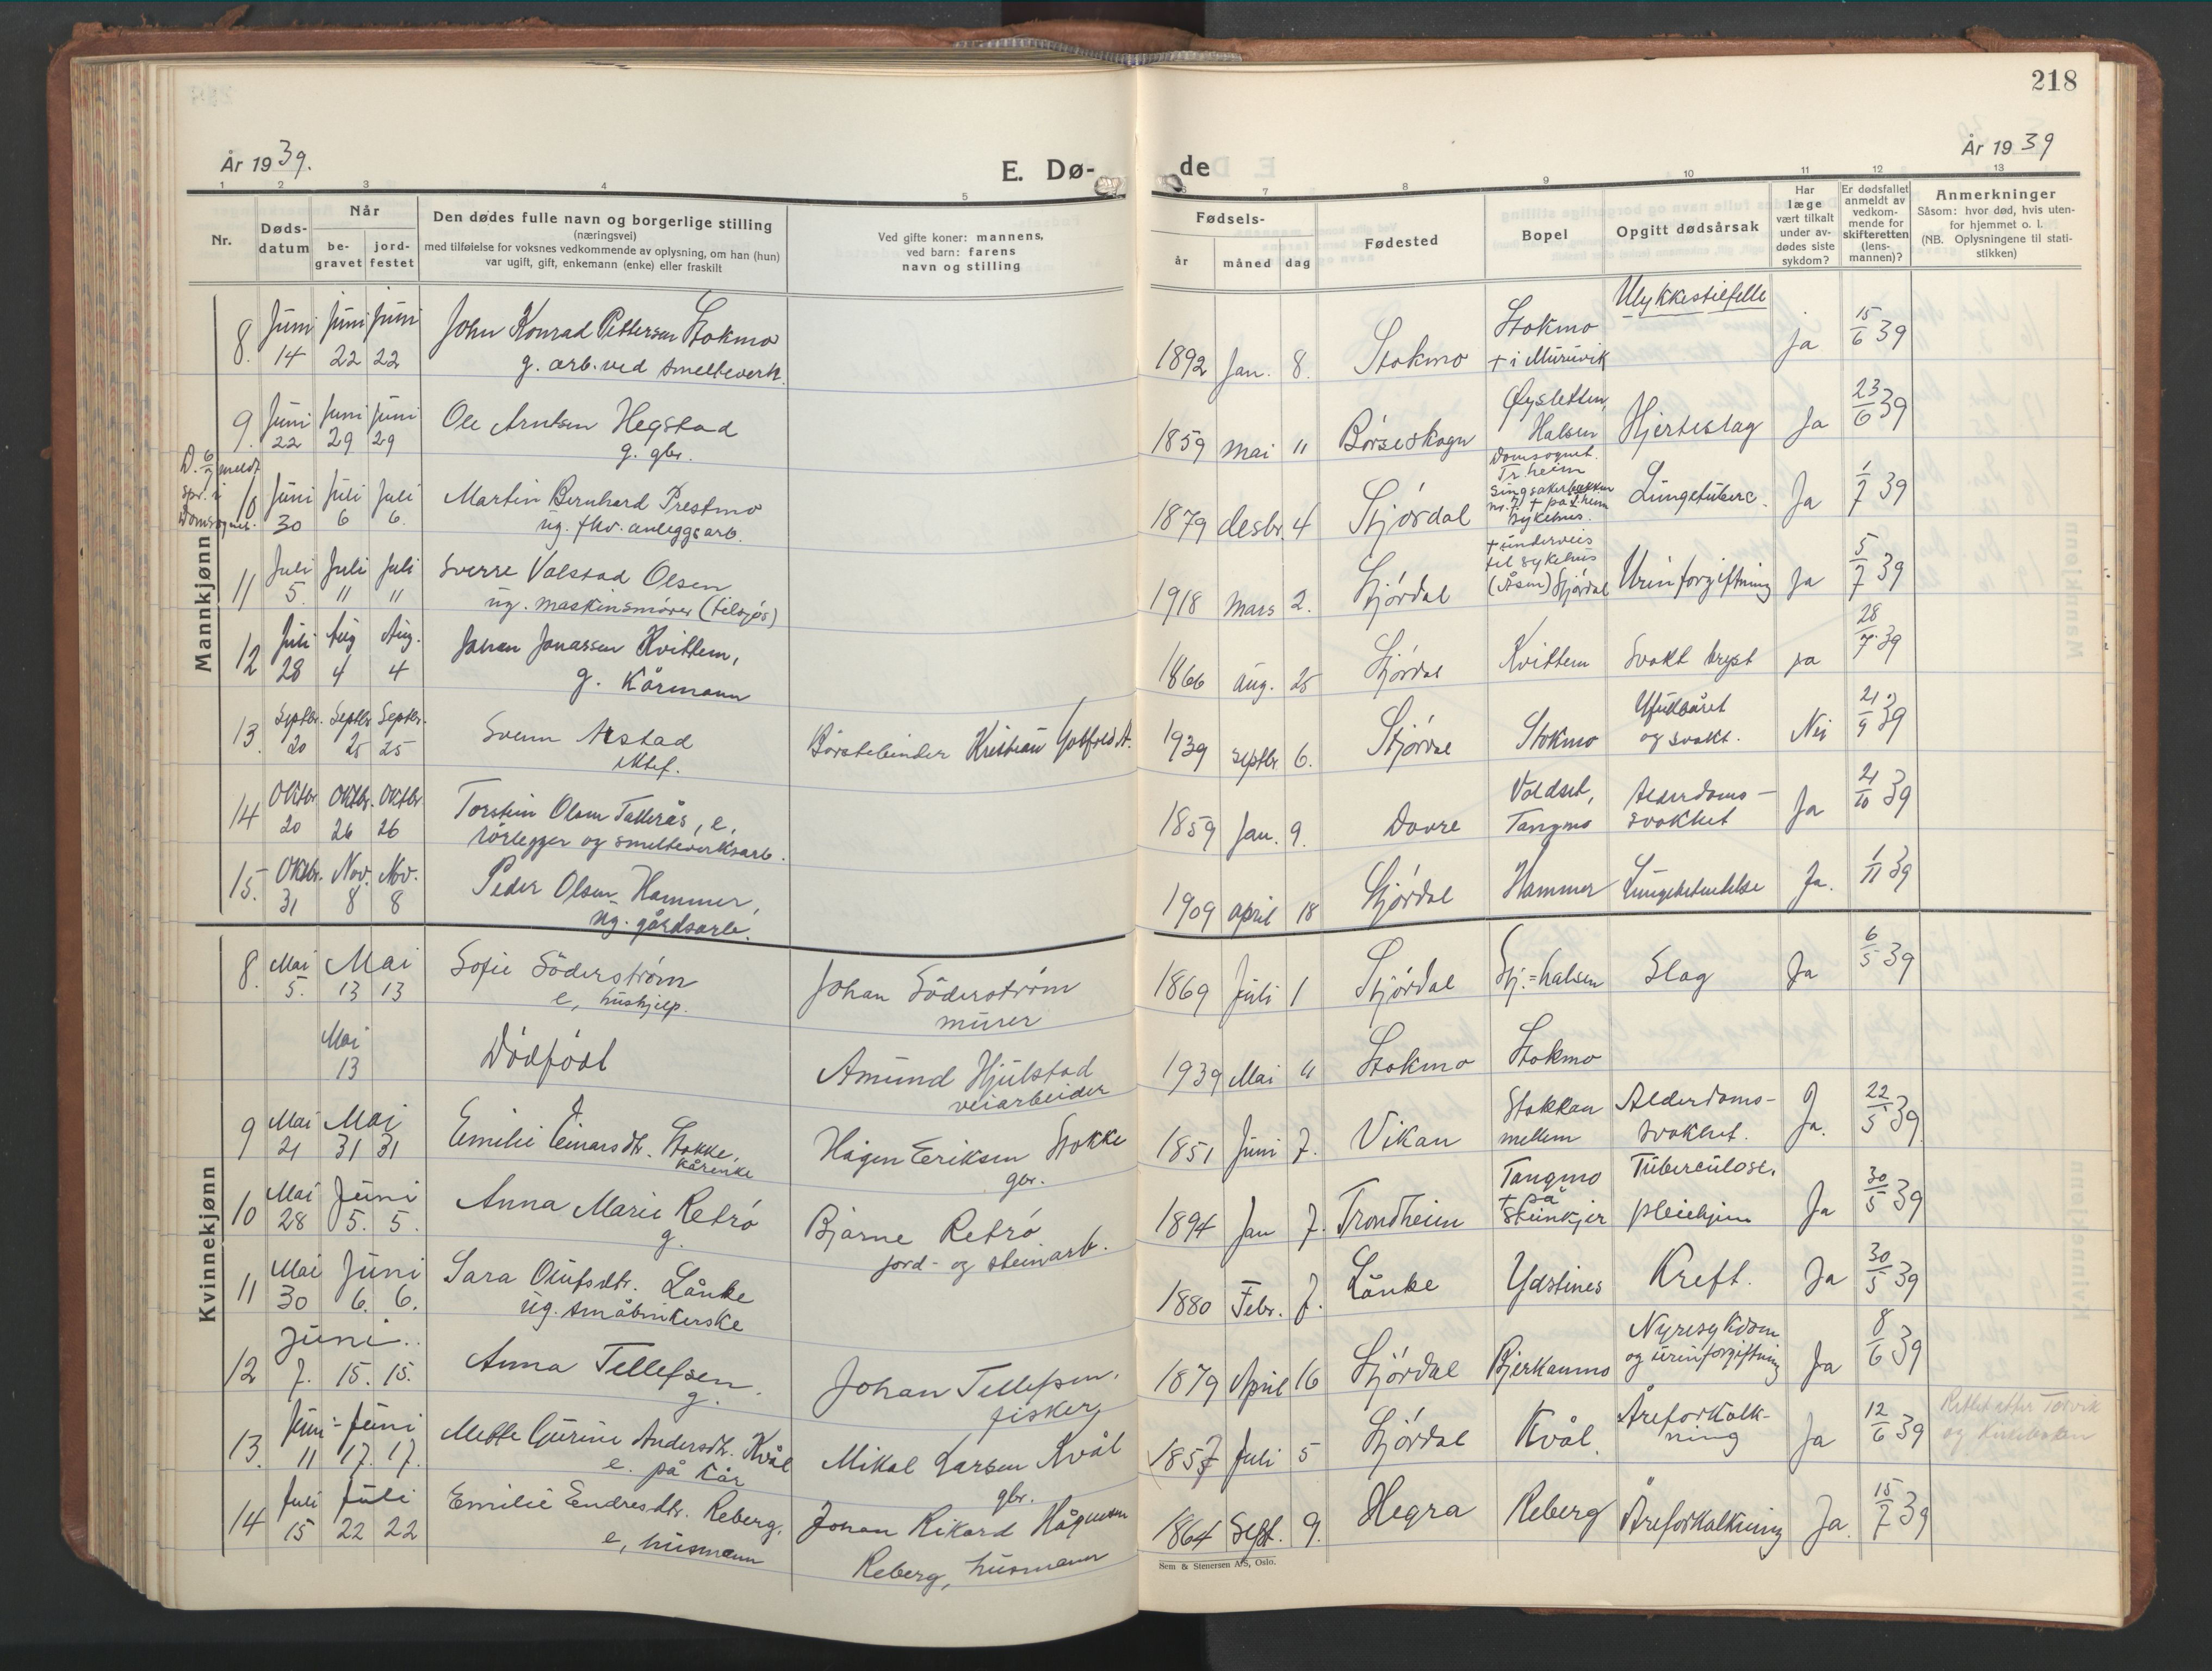 218
År 1939.
E. Dø-
de
År 1939
1 2 3 4 5 6 7 8 9 10 11 12 13
Nr.
Døds-
datum
Når
be-
gravet
jord-
festet
Den dødes fulle navn og borgerlige stilling
(næringsvei)
med tilføielse for voksnes vedkommende av oplysning, om han (hun)
var ugift, gift, enkemann (enke) eller fraskilt
Ved gifte koner: mannens,
ved barn: farens
navn og stilling
Fødsels-
år måned dag
Fødested
Bopel
Opgitt dødsårsak
Har
læge
vært tilkalt
under av-
dødes siste
sykdom?
Er dødsfallet
anmeldt av
vedkom-
mende for
skifteretten
(lens-
mannen)?
Anmerkninger
Såsom: hvor død, hvis uten-
for hjemmet o. l.
(NB. Oplysningene til stati-
stikken)
Mannkjønn
8. Juni 14 Juni 22 Juni 22 John Konrad Pettersen Stokmo
g. arb. ved smelteverk.
1892 Jan. 8. Stokmo Stokmo
+ i Muruvik
Ulykkestilfelle ja 15/6 39
9. Juni 22 Juni 29 Juni 29 Ole Arntsen Hegstad
g. gbr.
1859 Mai 11 Børseskogn Øysletten,
Halsen
Hjerteslag Ja 23/6 39
10 Juni 30 Juli 6 Juli 6. Martin Bernhard Prestmo
ug. fhv. anleggsarb.
1879 desbr. 4 Stjørdal Domsognet.
Tr.heim
Singsakerbakken
nr. 7) + på T.heim
Sykehus.
Lungetuberc. Ja 1/7 39
11 Juli 5. Juli 11 Juli 11 Sverre Valstad Olsen
ug. maskinsmører (tilsjøs)
1918 Mars 2. Stjørdal + underveis
til sykehus
(Åsen) Stjørdal
Urinforgiftning Ja 5/7 39
12 Juli 28 Aug 4 Aug. 4 Johan Jonassen Kvittem,
g. Kårmann
1866 Aug. 25 Stjørdal Kvittem Svakt bryst ja 28/7. 39
13. Septbr. 20 Septbr. 25 Septbr. 25 Svenn Arstad
Børstebinder Kristian Gotfred A.
1939 septbr 6. Stjørdal Stokmo Ufullbåret
og svakt. Nei 21/9 39
14 Oktbr 20 Oktbr. 26 Oktbr. 26 Torstein Olsen Tallerås, e,
rørlegger og smelteverksarb.
1859 Jan. 9. Dovre Voldset,
Tangmo
Alderdoms-
svakhet Ja 21/10 39
15. Oktbr. 31 Nov. 8 Nov. 8 Peder Olsen Hammer,
ug. gårdsarb.
1909 april 18 Stjørdal Hammer Lungebetendelse Ja. 1/11 39
Kvinnekjønn
8. Mai 5. Mai 13 13 Sofie Söderström
e, hushjelp.
Johan Söderström
murer
1869 Juli 1 Stjørdal Stj.=halsen Slag Ja 6/5 39
Mai 13 Dödfödt
Amund Hjulstad
veiarbeider
1939 Mai 11 Stokmo Stokmo
9 Mai 21 Mai 31 31 Emilie Einarsdtr. Stokke,
Kårenke
Hågen Eriksen Stokke
gbr.
1851 Juni 7. Vikan Stokkan
mellem
Alderdoms-
svakhet. Ja. 22/5 39
10 Mai 28 Juni 5. 5. Anna Marie Retrö
g.
Bjarne Retrö
jord- og steinarb.
1894 Jan 7. Trondheim Tangmo
+ på
Steinkjer
Tuberculose.
pleiehjem Ja 30/5 39
11 Mai 30 Juni 6. 6. Sara Olufsdtr. Lånke
ug. småbrukerske
1880 Febr. 7. Lånke Ydstines Kreft. Ja 30/5 39
12 Juni 7. 15. 15. Anna Tellefsen.
g.
Johan Tellefsen,
fisker
1879 April 16 Stjørdal Bjerkanmo Nyresykdom
og urinforgiftning Ja 8/6 39
13. Juni 11 Juni 17. 17. Mette Gurine Andersdtr. Kvål
e. på kår
Mikal Larsen Kvål
gbr.
1857 Juli 5 Stjørdal Kvål. Åreforkalk-
ning Ja 12/6 39
14 Juli 15 Juli 22 22 Emilie Endresdtr. Reberg,
e, husmann
Johan Rikard Hågensen
Reberg, husmann
1864 Sept. 9. Hegra Reberg Åreforkalkning Ja. 15/7 39
Sem & Stenersen A/S, Oslo.